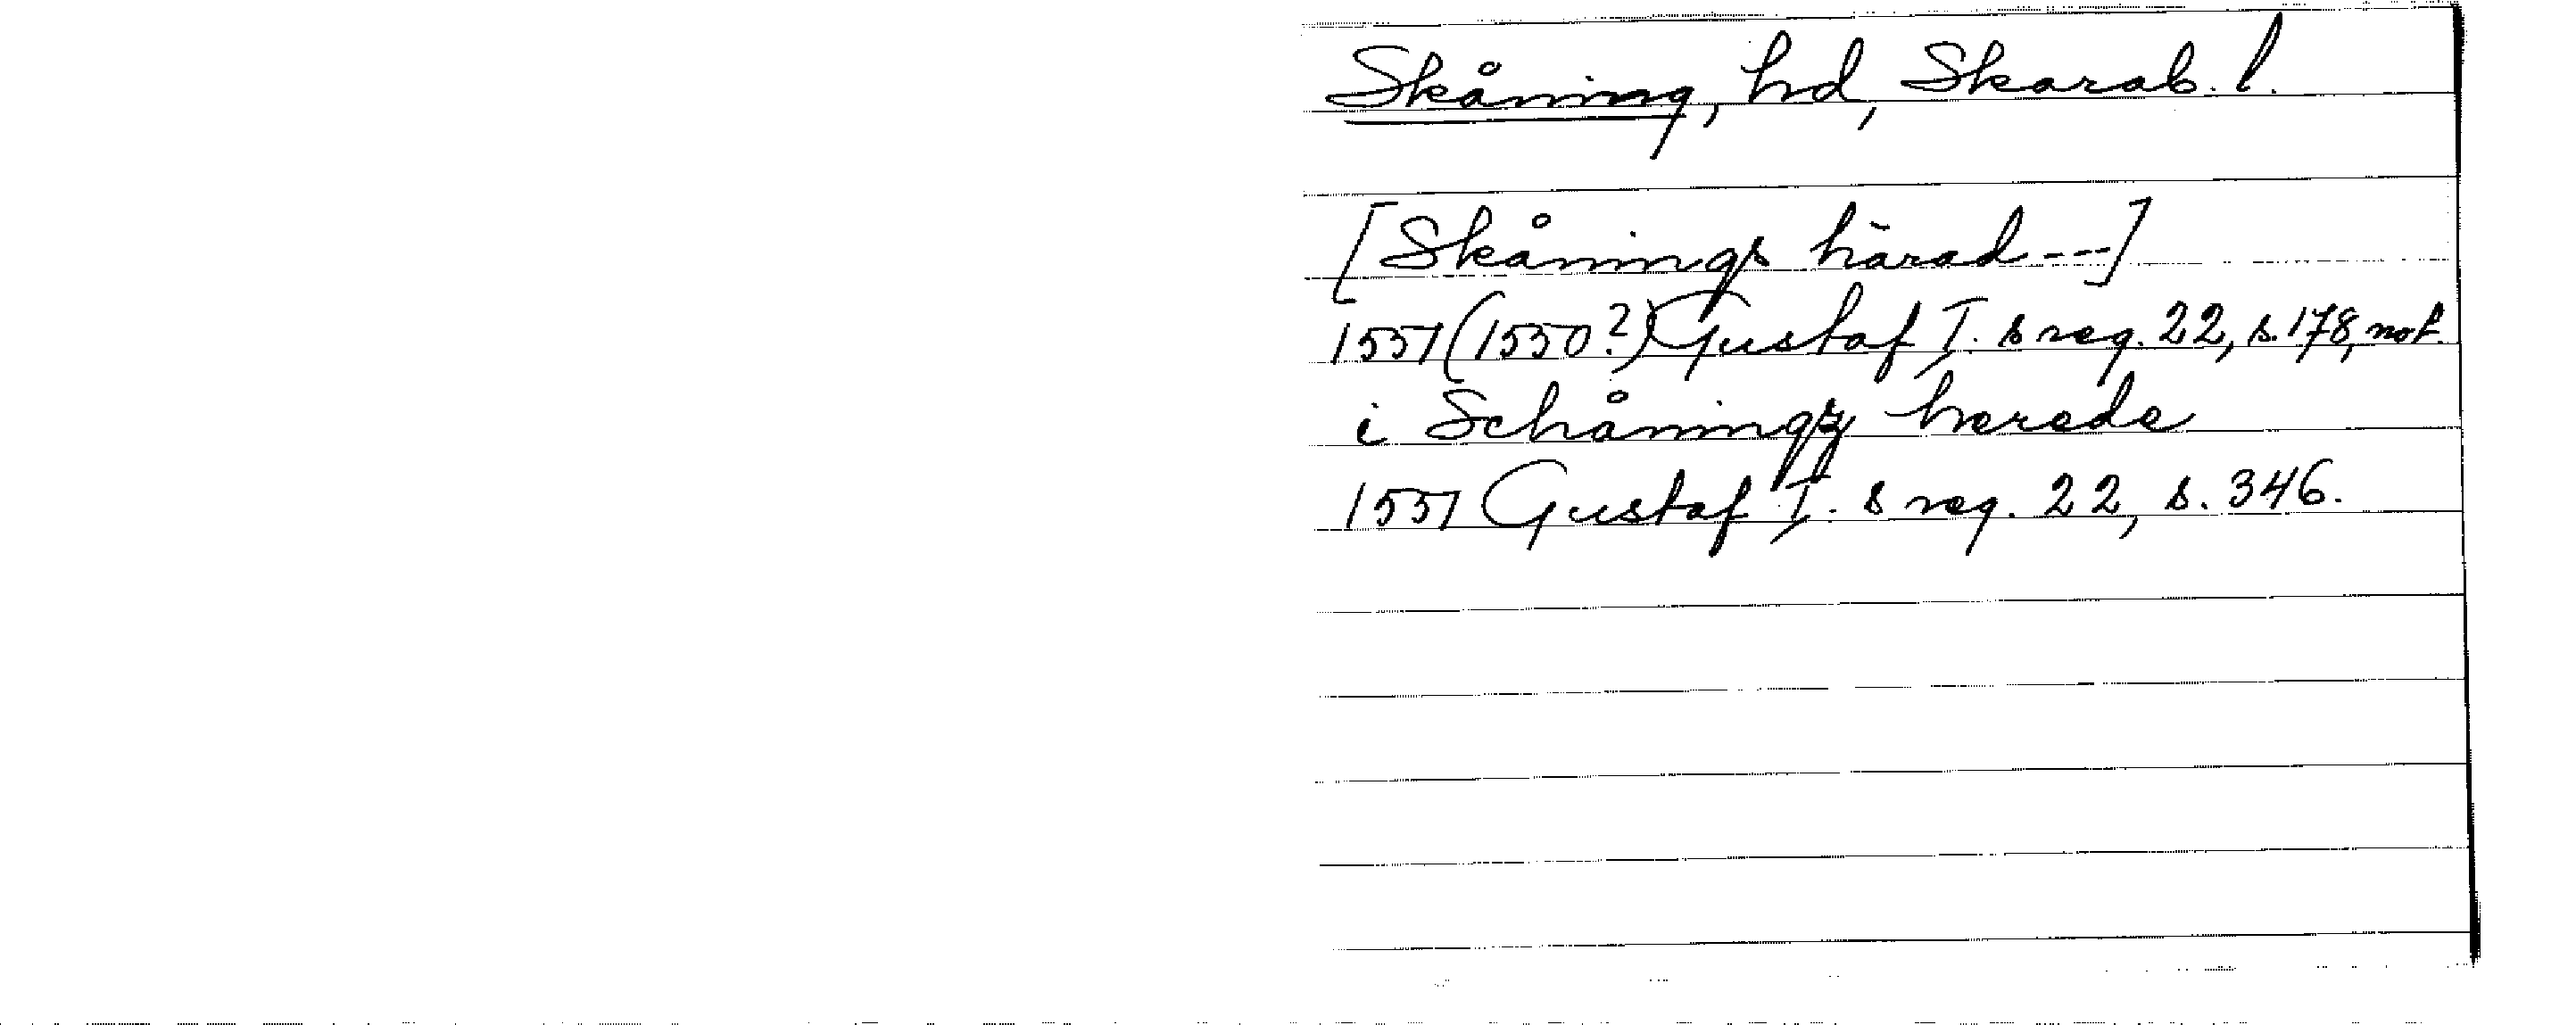 Skåning, hd, Skarab. l.
[Skånings härad ---]
1551 (1550?) Gustaf I. s reg. 22, s. 178, not.
i Schåningz herede
1551 Gustaf I. s reg. 22, s. 346.